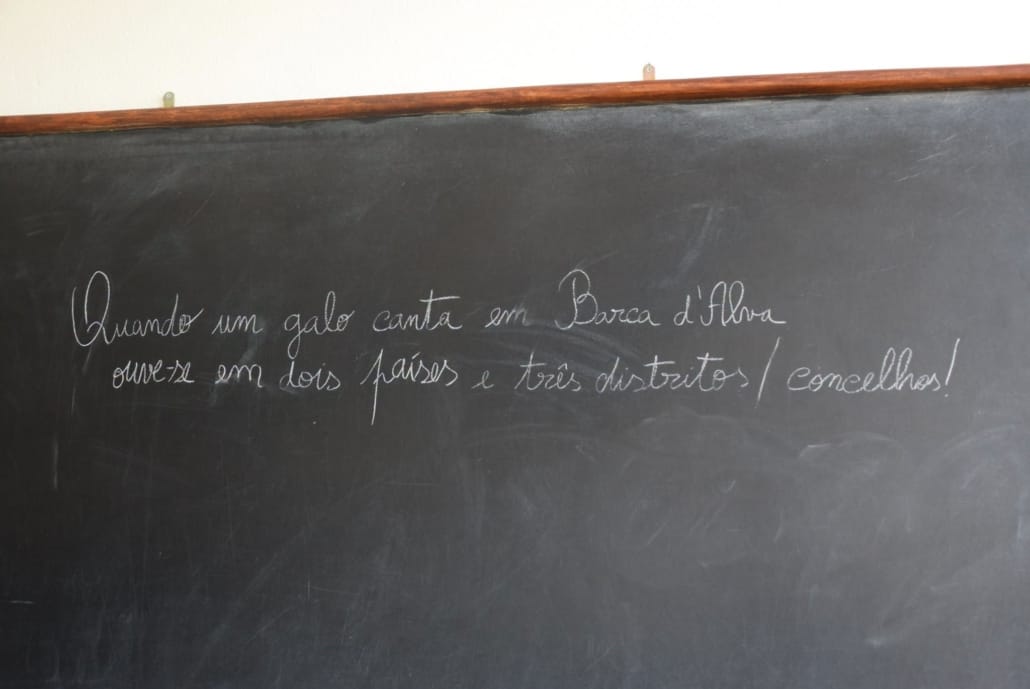 Quando um galo canta em Barca d'Alva
ouve-se em dois países e três distritos / concelhos!